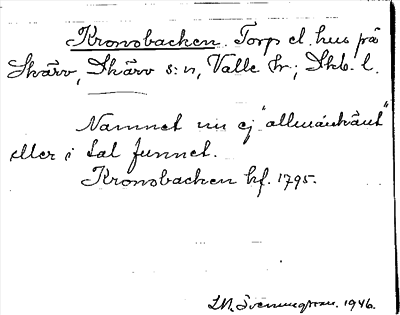 Kronsbacken. Torp el. hus på
Skärv, Skärv s:n, Valle hr; Skb. l.
Namnet nu ej "allmänkänt"
eller i tal funnet.
Kronsbacken hf. 1795.
1946.